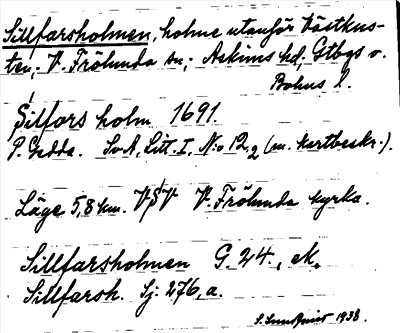 Sillfarsholmen, holme utanför Västkus-
ten, V. Frölunda sn; Askims hd, Gtbgs o.
Bohus l.
Silfors holm 1691.
P. Gedda. Sv A, Litt. I, No 12,2 (m. kartbeskr.).
Läge 5,8 km. VSV V. Frölunda kyrka.
Sillfarsholmen G. 24, ek.
Sillfarsh. Sj. 276, a.
S. Sundquist 1938.